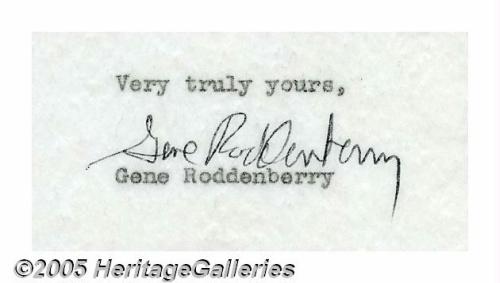 Very truly yours,
Gene Roddenberry
Gene Roddenberry
©2005 HeritageGalleries